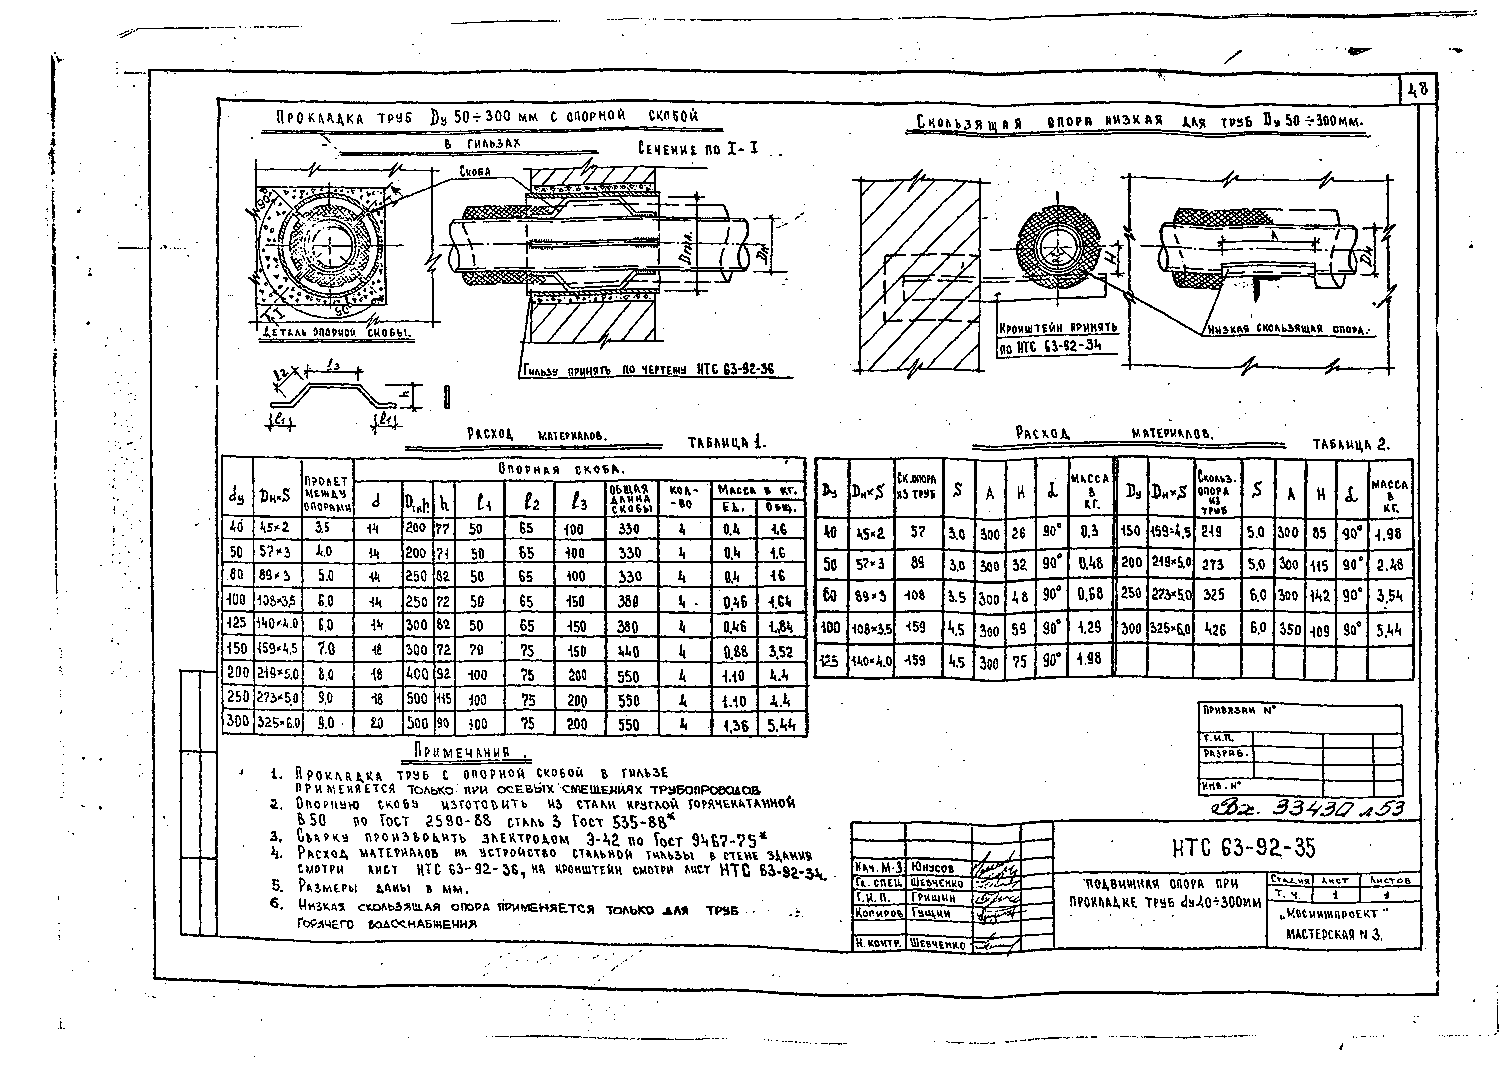 48
Прокладка труб Dу 50÷300 мм с опорной скобой
в гильзах
Сечение по I-I
Скоба
Dгил.
Dн
Деталь опорной скобы.
Гильзу принять по чертежу НТС 63-92-36
l2
l3
h
l1
l1
Скользящая опора низкая для труб Dу 50÷300мм.
H
A
Dн
Кронштейн принять
по НТС 63-92-34
Низкая скользящая опора.
Расход материалов. Таблица 1.
dу Dн×S Пролет между опорами Опорная скоба.
d h l1 l2 l3 Общая длина скобы Кол-во Масса в кг.
Ед. Общ.
40 45×2 3.5 14 200 77 50 65 100 330 4 0.4 1.6
50 57×3 4.0 14 200 71 50 65 100 330 4 0.4 1.6
80 89×3 5.0 14 250 82 50 65 100 330 4 0.4 16
100 108×3,5 6.0 14 250 72 50 65 150 380 4 0,46 1,64
125 140×4.0 6.0 14 300 82 50 65 150 380 4 0,46 1,84
150 159×4,5 7.0 18 300 72 70 75 150 440 4 0,88 3,52
200 219×5,0 8,0 18 400 92 100 75 200 550 4 1.10 4.4
250 273×5,0 9,0 18 500 115 100 75 200 550 4 1.10 4.4
300 325×6.0 9.0 20 500 90 100 75 200 550 4 1,36 5,44
Расход материалов. Таблица 2.
Dу Dн×S Ск.опора из труб S A H L Масса в кг. Dу Dн×S Скольз. опора из труб S A H L Масса в кг.
40 45×2 57 3,0 300 26 90° 0,3 150 159×4,5 219 5.0 300 85 90° 1,98
50 57×3 89 3,0 300 32 90° 0,48 200 219×5,0 273 5,0 300 115 90° 2.48
80 89×3 108 3.5 300 48 90° 0,68 250 273×5,0 325 6,0 300 142 90° 3,54
100 108×3,5 159 4,5 300 59 90° 1,29 300 325×6,0 426 6,0 350 109 90° 5,44
125 140×4.0 159 4,5 300 75 90° 1.98
Примечания.
1. Прокладка труб с опорной скобой в гильзе
применяется только при осевых смещениях трубопроводов
2. Опорную скобу изготовить из стали круглой горячекатанной
В50 по Гост 2590-88 сталь 3 Гост 535-88*
3. Сварку производить электродом Э-42 по Гост 9467-75*
4. Расход материалов на устройство стальной гильзы в стене здания
смотри лист НТС 63-92-36, на кронштейн смотри лист НТС 63-92-34.
5. Размеры даны в мм.
6. Низкая скользящая опора применяется только для труб
горячего водоснабжения
Привязан N°
Г.И.П.
Разраб.
Инв. N°
Вх. 33430 л 53
НТС 63-92-35
Нач. М-3 Юнусов
Гл. спец. Шевченко
Г.И.П. Гришин
Копиров Гущин
Н. контр. Шевченко
Подвижная опора при
прокладке труб dу40÷300мм
Стадия Лист Листов
Т. Ч. 1 1
„Мосинжпроект"
Мастерская N 3.